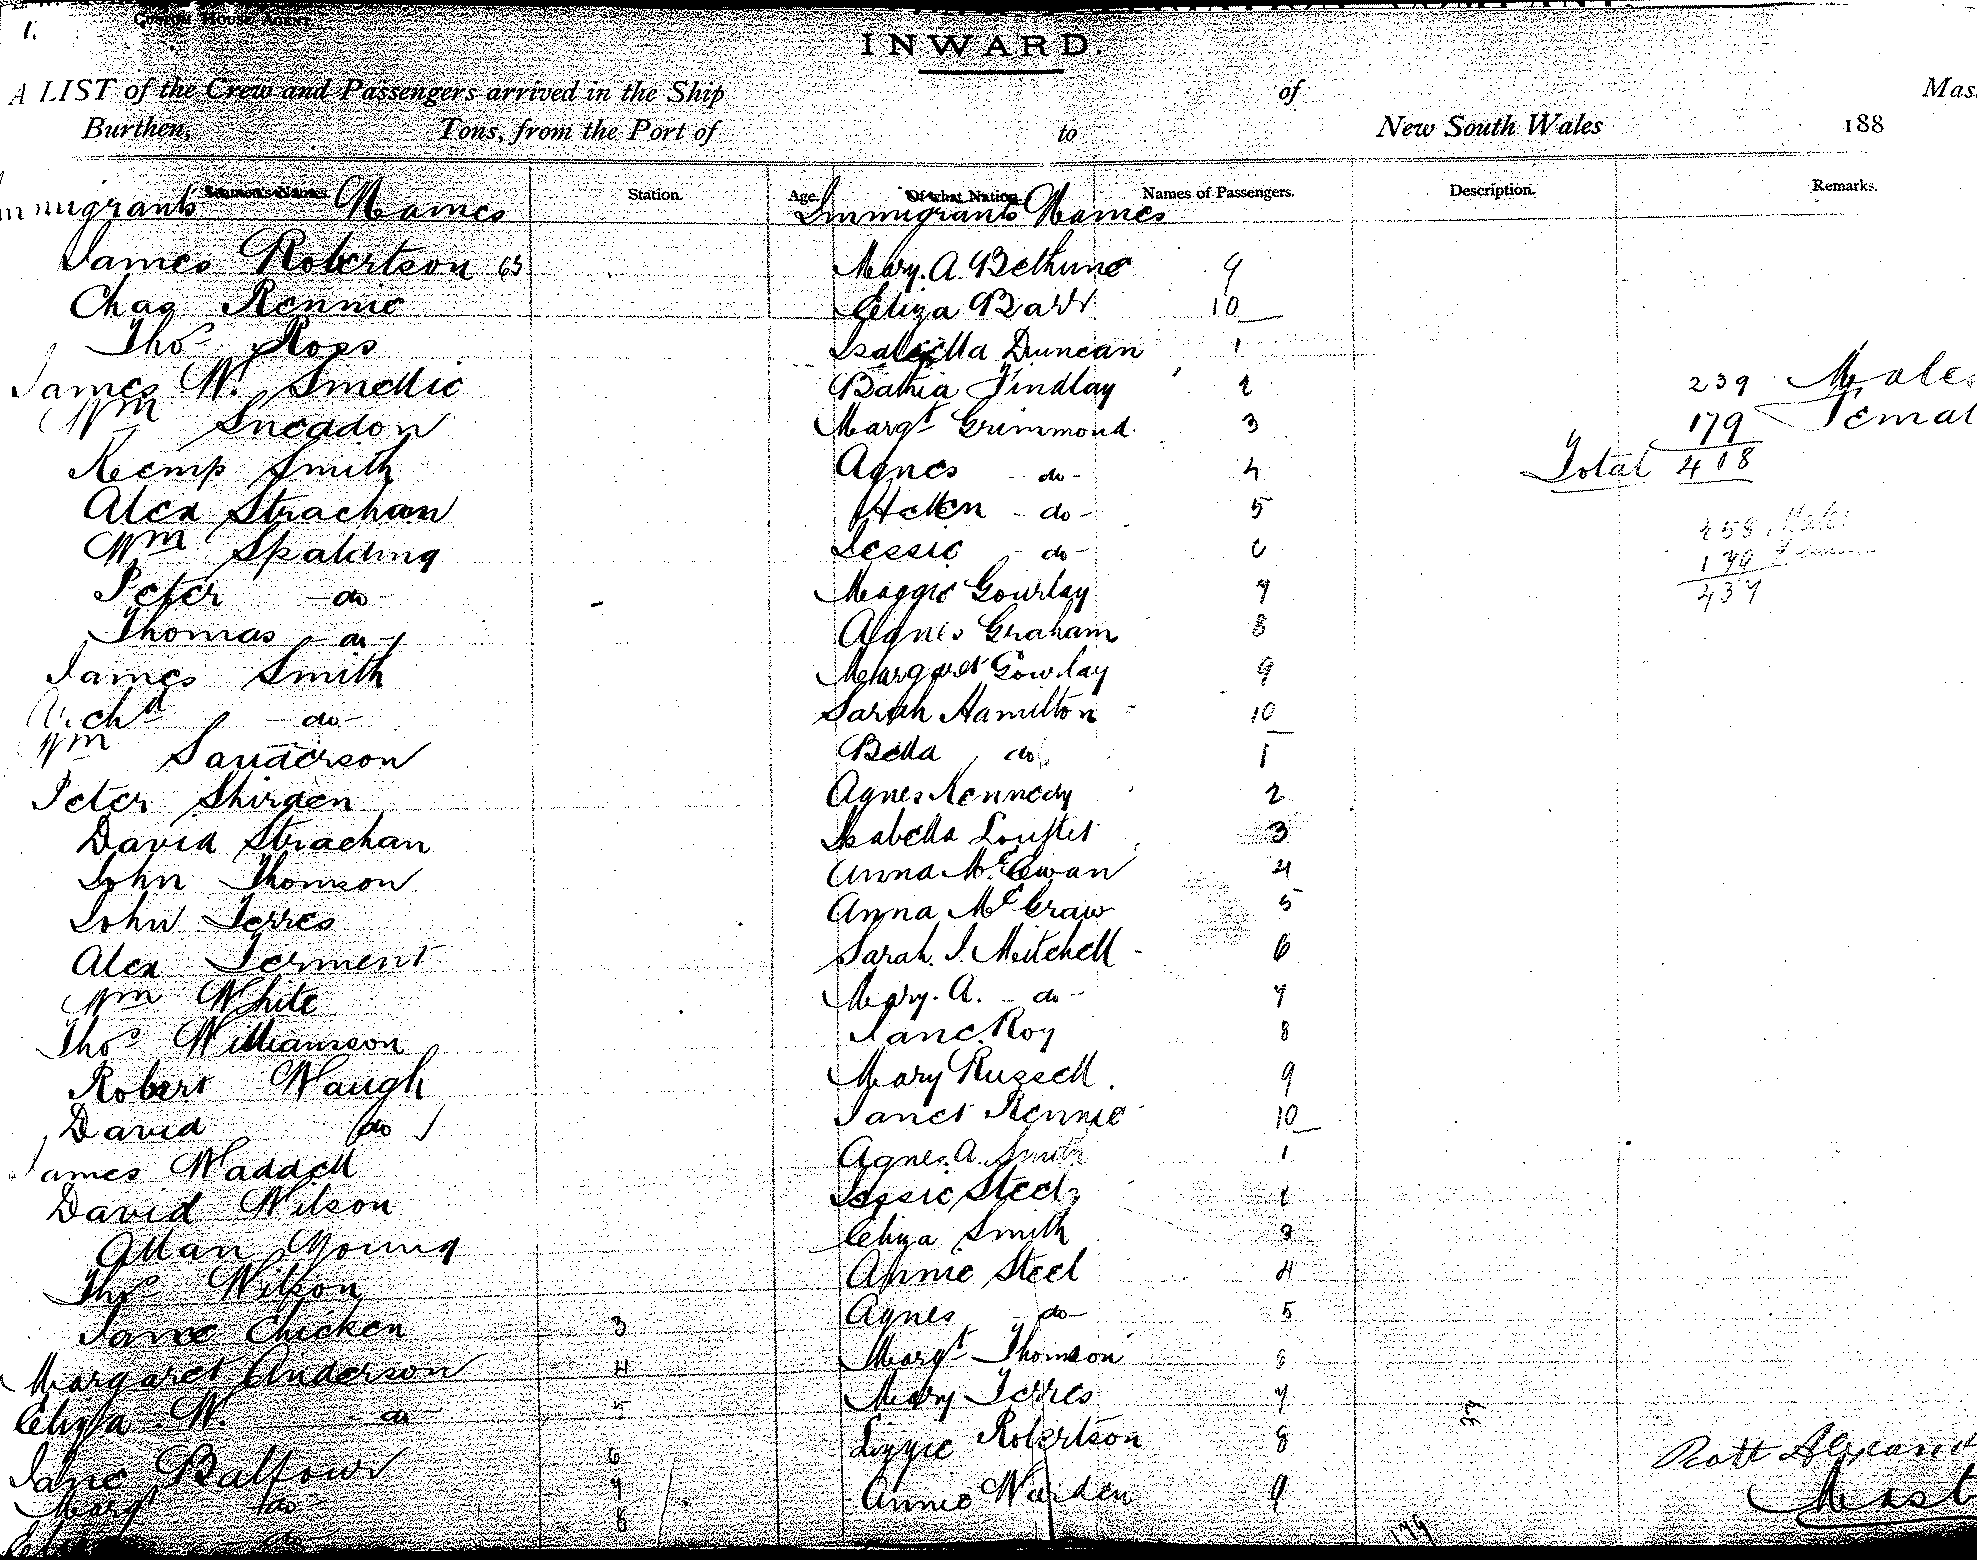 1.
CUSTOM HOUSE AGENT
INWARD.
A LIST of the Crew and Passengers arrived in the Ship of Mas
Burthen, Tons, from the Port of to New South Wales 188
Station. Age. Of what Nation Names of Passengers. Description. Remarks.
mmigrants Names
Immigrants Names
James Robertson 63
Chas Rennie
Thos Ross
James W. Smellie
Wm Sneddon
Kemp Smith
Alex Strachan
Wm Spalding
Peter - do -
Thomas - do -
James Smith
Richd - do -
Wm Sanderson
Peter Shirden
David Strachan
John Thomson
John Terres
Alex Terment
Wm White
Thos Williamson
Robert Waugh
David do
James Waddell
David Wilson
Allan Young
Thos Wilson
Jane Chicken 3
Margaret Anderson 4
Eliza W. do 5
Jane Balfour 6
Margt do 7
8
Mary. A. Bethune 9
Eliza Barr 10
Isabella Duncan 1
Bathia Findlay 2
Margt Grimmond 3
Agnes - do - 4
Hellen - do - 5
Jessie - do - 6
Maggie Gourlay 7
Agnes Graham 8
Margaret Gourlay 9
Sarah Hamilton 10
Bella do 1
Agnes Kennedy 2
Isabella 3
Anna McEwan 4
Anna McGraw 5
Sarah. J. Mitchell 6
Mary. A. - do - 7
Jane Roy 8
Mary Russell. 9
Janet Rennie 10
Agnes. A. Smith 1
Jessie Steel 2
Eliza Smith 3
Annie Steel 4
Agnes - do - 5
Margt Thomson 6
Mary Terres 7
Lizzie Robertson 8
Annie Warden 9
239 Males
179 Femal
Total 418
258 Males
179
437
39
179
Robt Alexand
Mast